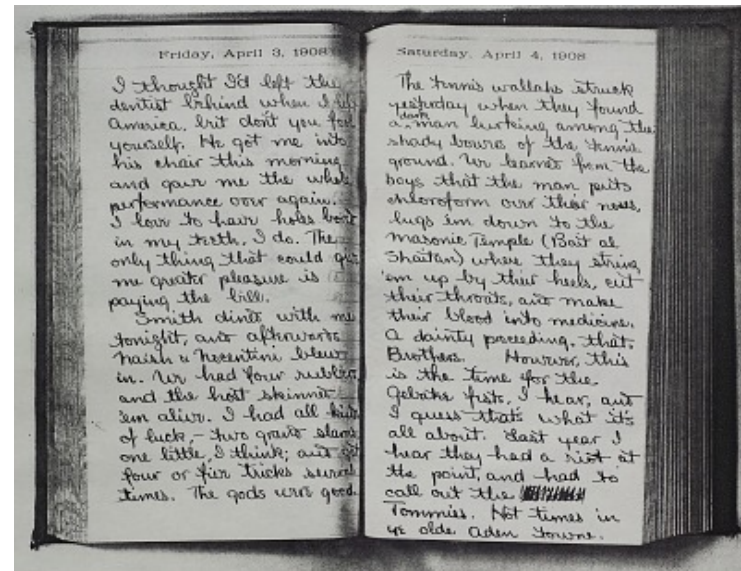 Friday, April 3, 1908
I thought I'd left the
dentist behind when I left
America, but don't you fool
yourself. He got me into
his chair this morning
and gave me the whole
performance over again.
I love to have holes bored
in my teeth, I do. The
only thing that could give
me greater pleasure is
paying the bill.
Smith dined with me
tonight, and afterwards
Naish & blew
in. We had four rubbers
and the host skinned
'em alive. I had all kinds
of luck, – two grand slams
one little, I think; and got
four or five tricks several
times. The gods were good.
Saturday, April 4, 1908
The tennis wallahs struck
yesterday when they found
a dark man lurking among the
shady bowers of the tennis
ground. We learned from the
boys that the man puts
chloroform over their noses,
lugs 'em down to the
Masonic Temple (Bait al
Shaitan) where they string
'em up by their heels, cut
their throats, and make
their blood into medicine.
A dainty proceeding, that,
Brothers. However, this
is the time for the
fists, I hear, and
I guess that's what it's
all about. Last year I
hear they had a riot at
the point, and had to
call out the
Tommies. Hot times in
ye olde Aden Towne.